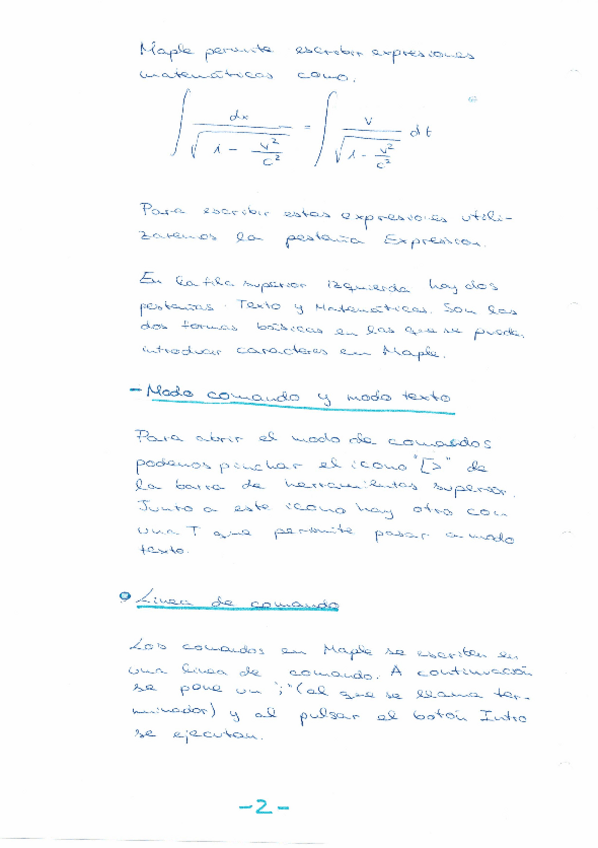 Maple permite escribir expresiones
matemáticas como.
∫ dx / √(1 - v²/c²) = ∫ v / √(1 - v²/c²) dt
Para escribir estas expresiones utili-
zaremos la pestaña Expression.
En la fila superior izquierda hay dos
pestañas. Texto y Matemáticas. Son las
dos formas básicas en las que se puede
introducir caracteres en Maple.
- Modo comando y modo texto
Para abrir el modo de comandos
podemos pinchar el icono "[>" de
la barra de herramientas superior.
Junto a este icono hay otro con
una T que permite pasar a modo
texto.
Linea de comando
Los comandos en Maple se escriben en
una linea de comando. A continuación
se pone un ";" (al que se llama ter-
minador) y al pulsar el botón Intro
se ejecutan.
-2-